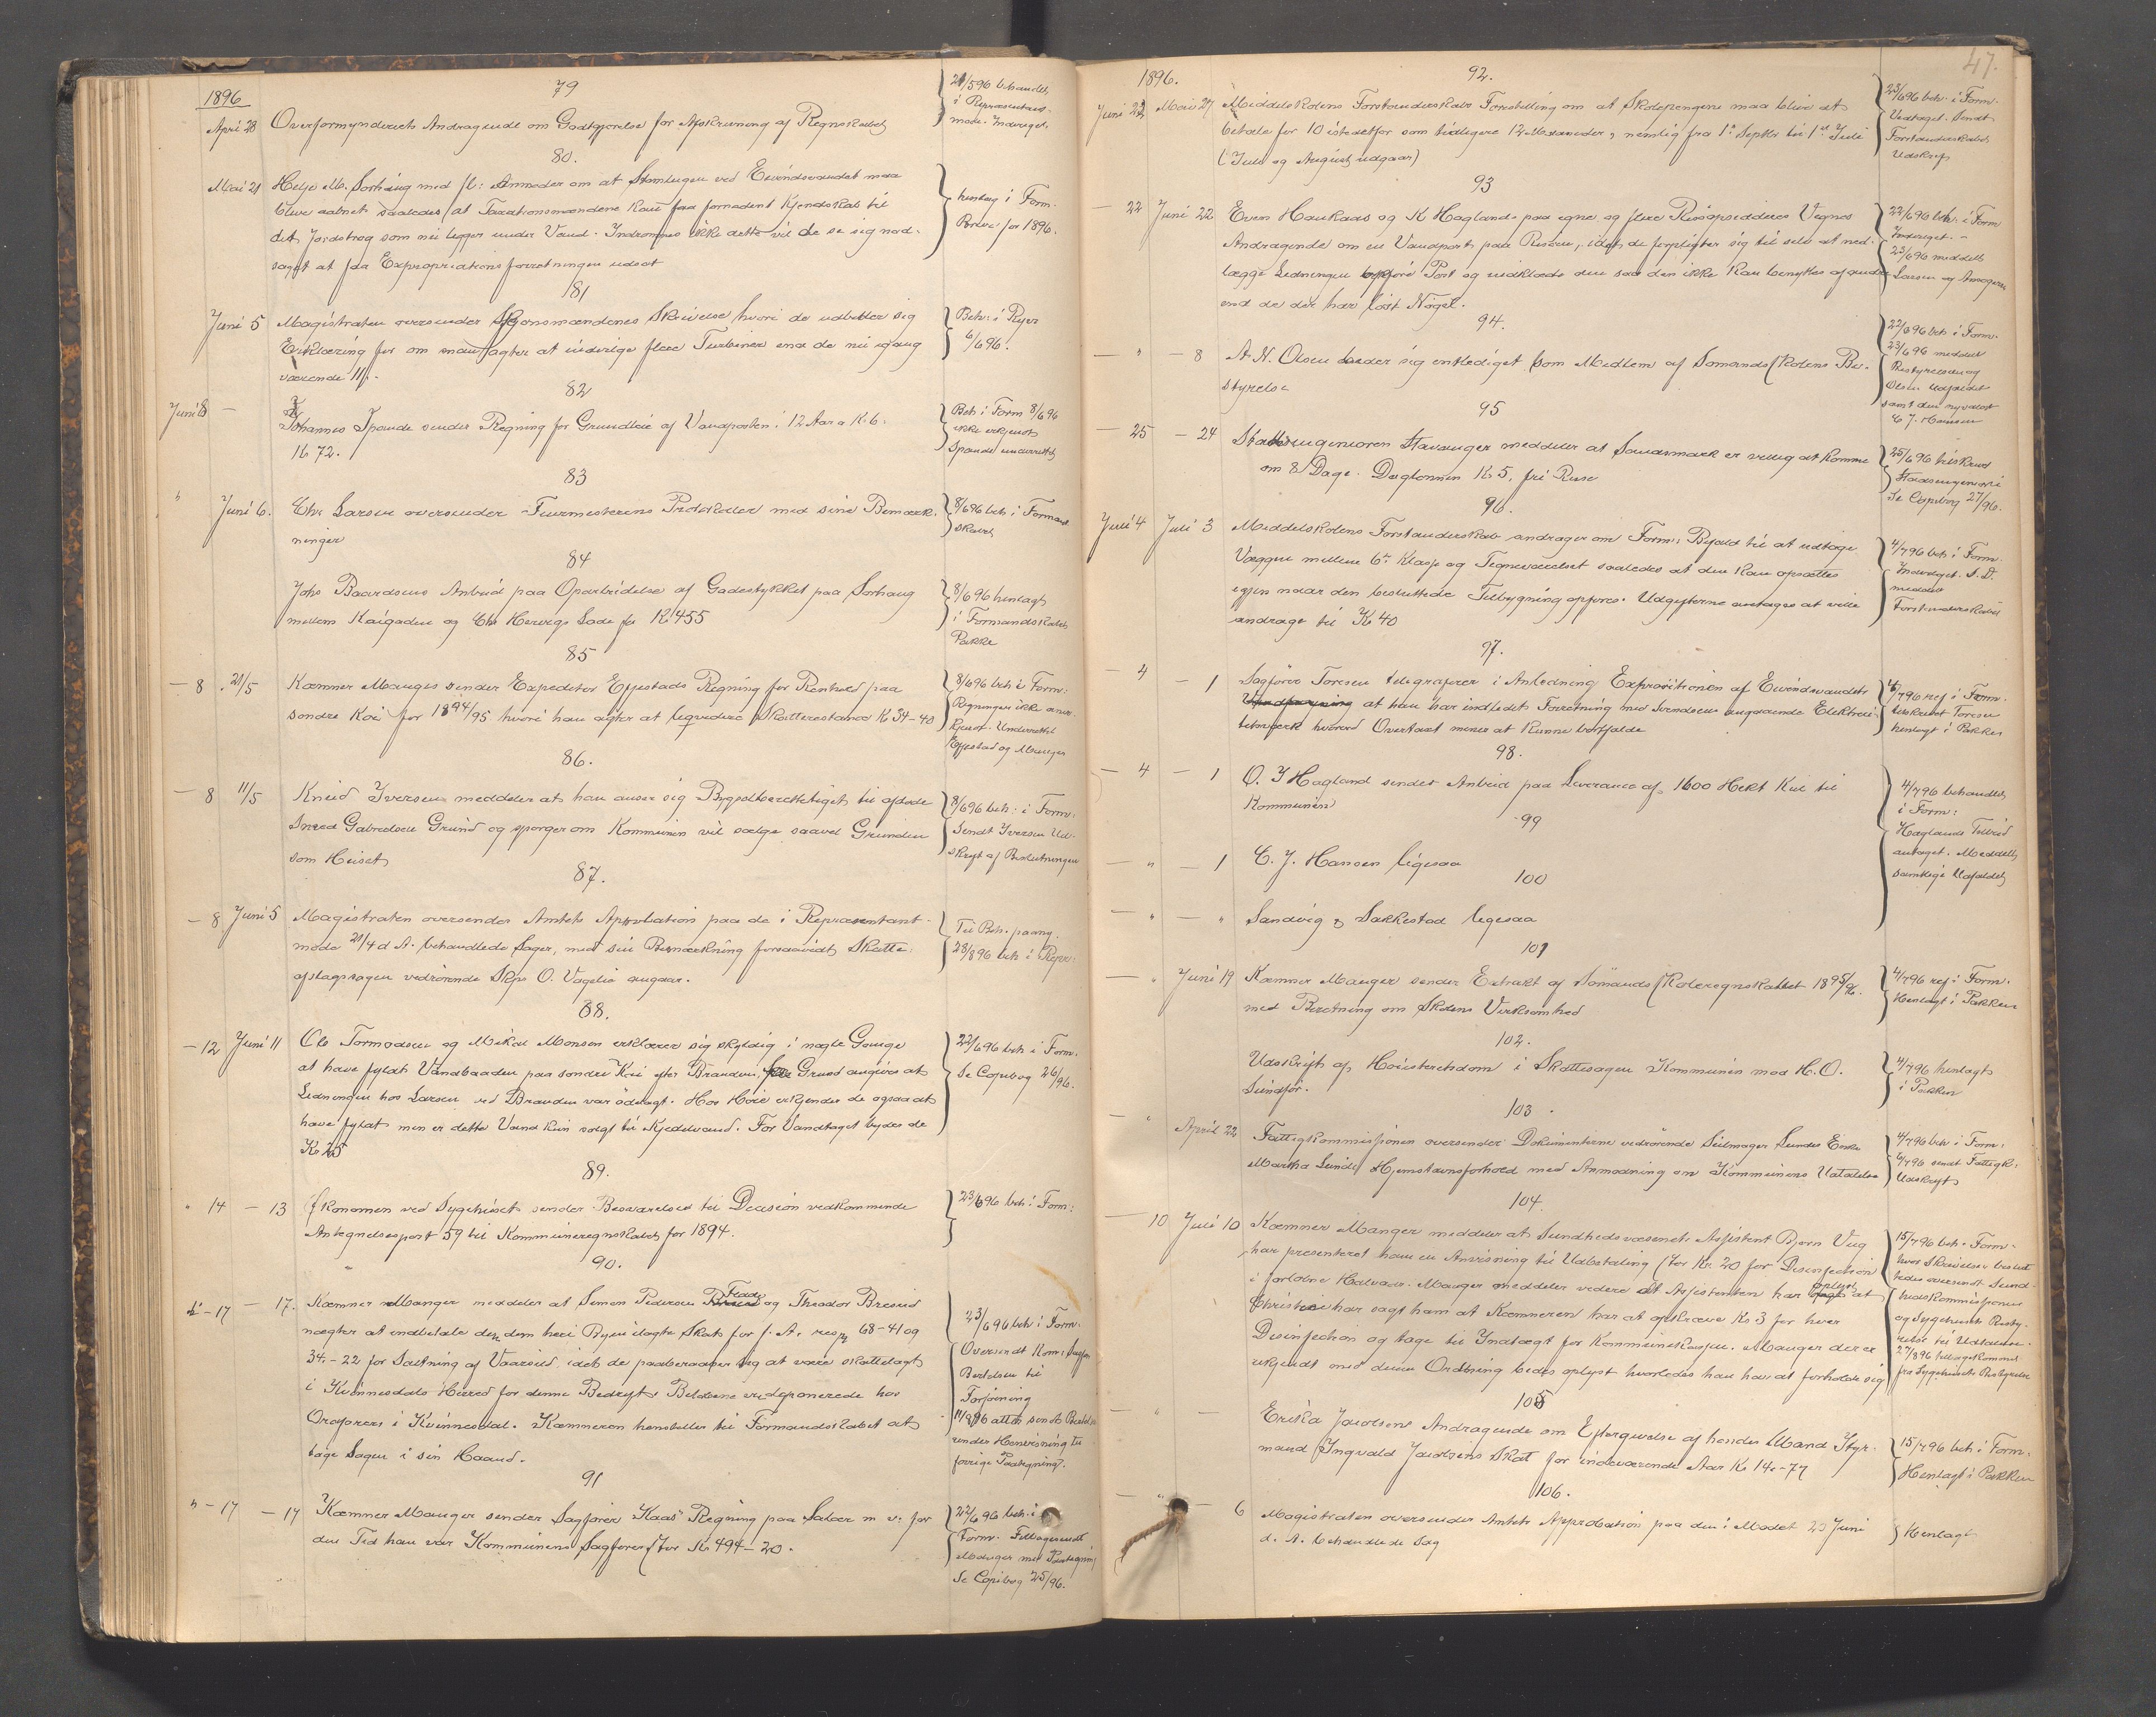 1896
79
Apri 28 Overformynderiets Andragende om Godtgjørelse for Afskrivning af Regnskabet
21/5 96 behandlet
i Repræsentant-
møde. Indvilget.
80.
Mai 21 Helje M. Sørhaug med fl: Anmoder om at Stemningen ved Eivindsvandet maa
blive aabnet saaledes at Taxationsmændene kan faa fornødent Kjendskab til
det Jordstrøg som nu ligger under Vand. Indrømmes ikke dette vil de se sig nød-
saget at faa Expropriationsforretningen udsat
henlagt i Form.
Protoc. for 1896.
81
Juni 5 Magistraten oversender Skjønsmændenes Skrivelse hvori de udbeder sig
Erklæring for om man agter at indvirge flere Turbiner end de nu igang
værende 11.
Beh: i Repr
6/6 96.
82
Juni 8 — Johannes Spande sender Regning for Grundleie af Vandposten i 12 Aar a K. 6.
K 72.
Beh i Form 8/6 96
ikke erkjendt
Spande underrettet
83
" Juni 6. Chr Larsen oversender Fyrmesterens Protokoller med sine Bemærk-
ninger
8/6 96 beh i Formand
skabet
84
Johs Baardsens Anbud paa Oparbeidelse af Gadestykket paa Sørhaug
mellem Kaigaden og Chr Haverigs Lade for K 455
8/6 96 henlagt
i Formandskabets
Pakke
85
— 8 . 21/5 Kæmner Manger sender Expeditør Eppestads Regning for Renhold paa
søndre Kai for 1894/95 hvori han agter at liqvidere Skatterestance K 34-40
8/6 96 beh i Form:
Regningen ikke aner-
kjendt. Underrettet
Eppestad og Manger
86.
— 8 11/5 Knud Iversen meddeler at han anser sig Bygselberettiget til afdøde
Sneed Gabrielsen Grund og spørger om Kommunen vil sælge saavel Grunden
som Huset
8/6 96 beh: i Form.
Sendt Iversen Ud-
skrift af Beslutningen
87.
— 8 Juni 5 Magistraten oversender Amtets Approbation paa de i Repræsentant-
møde 21/4 d A. behandlede Sager, med sin Bemærkning forsaavidt Skatte-
afslagssagen vedrørende Skps O. Vagelie angaar.
Til Beh. paany.
28/8 96 beh i Repr:
88.
— 12 Juni 11 Ole Tormodsen og Mikal Monsen erklærer sig skyldig i nogle Gange
at have fyldt Vandbaaden paa søndre Kai efter Branden, Grund angives at
Ledningen hos Larsen ved Branden var ødelagt. Hos Høie erkjender de ogsaa at
have fyldt men er dette Vand kun solgt til Kjedelvand. For Vandtaget bydes de
Kr 25
22/6 96 beh i Form.
Se Copibog 26/96.
89.
" 14 — 13 Økonomen ved Sygehuset sender Besvarelsen til Decision vedkommende
Antegnelsespost 59 til Kommuneregnskabet for 1894.
23/6 96 beh i Form:
90.
— 17 — 17. Kæmner Manger meddeler at Simon Pedersen Flade og Theodor Bresud
nægter at indbetale den dem heri Byen ilagte Skat for f. A. resp 68-41 og
34-22 for Saltning af Vaarsild idet de paaberaaber sig at være skattelagt
i Kvinnesdals Herred for denne Bedrift. Beløbene er deponerede hos
Ordføreren i Kvinnesdal. Kæmneren henstiller til Formandskabet at
tage Sagen i sin Haand.
23/6 96 beh i Form.
Oversendt Kom: Sagfør
Bertelsen til
Forføining
11/8 96 atter sendt Bertelsen
under Henvisning til
forrige Paategning.
91
" — 17 — 17 Kæmner Manger sender Sagfører Kaas' Regning paa Salær m v: for
den Tid han var Kommunens Sagfører stor Kr 494-20.
22/6 96 beh: i
Form. Tilbagesendt
Manger med Paategning
Se Copibog 25/96.
47.
1896.
92.
Juni 22 Mai 27 Middelskolens Forstanderskabs Forestilling om at Skolepengene maa blive at
betale for 10 istedetfor som tidligere 12 Maaneder, nemlig fra 1ste Septbr til 1ste Juli
(Juli og August udgaar)
23/6 96 beh. i Form.
Vedtaget. Sendt
Forstanderskabet
Udskrift
93
— 22 Juni 22 Even Haukaas og K Haglands paa egne og flere Risøopsidderes Vegne
Andragende om en Vandpost paa Risøen, idet de forpligter sig til selv at ned-
lægge Ledningen opføre Post og indklæde den saa den ikke kan benyttes af andre
end de der har løst Nøgel.
22/6 96 beh. i Form
Indvilget. –
23/6 96 meddelt
Larsen og Ansøgerne
94.
— " — 8 A. N. Olsen beder sig entlediget som Medlem af Sømandsskolens Be-
styrelse
22/6 96 beh i Form.
23/6 96 meddelt
Bestyrelsen og
Olsen Udfaldet
samt den nyvalgte
C J. Hansen
95
— 25 — 24 Stadsingeniøren Stavanger meddeler at Sandsmark er villig at komme
om 8 Dage. Daglønnen K 5, fri Reise
25/6 96 tilskrevet
Stadsingeniøren
Se Copibog 27/96.
96.
Juli 4 Juli 3 Middelskolens Forstanderskab andrager om Form: Bifald til at udtage
Væggen mellem 6te Klasse og Tegneværelset saaledes at den kan opsættes
igjen naar den besluttede Tilbygning opføres. Udgifterne antages at ville
andrage til K 40
4/7 96 beh i Form.
Indvilget. S. D.
meddelt
Forstanderskabet
97.
— 4 — 1 Sagfører Toresen telegraferer i Anledning Expropriationen af Eivindsvandets
at han har indledet Forretning med Svendsen angaaende Elektrici-
tetsværk hvorved Overtaxt mener at kunne bortfalde
4/7 96 ref i Form.
tilskrevet Toresen
henlagt i Pakken
98.
— 4 — 1 O. J Hagland sender Anbud paa Leverance af 1600 Hekt Kul til
Kommunen
4/7 96 behandlet
i Form:
Haglands Tilbud
antaget. Meddelt
samtlige Udfaldet
99
— " — 1 C. J. Hansen ligesaa
100
— " — " Sandvig & Sakkestad ligesaa
101
— " Juni 19 Kæmner Manger sender Extrakt af Sømandsskoleregnskabet 1895/96.
med Beretning om Skolens Virksomhed
4/7 96 ref i Form.
Henlagt i Pakken
102.
Udskrift af Høiesteretsdom i Skattesagen Kommunen mod H. O.
Sundfør.
4/7 96 henlagt
i Pakken
103.
— " April 22 Fattigkommissionen oversender Dokumenterne vedrørende Seilmager Sundes Enke
Martha Sunde Hjemstavnsforhold med Anmodning om Kommunens Udtalelse
4/7 96 beh i Form.
6/7 96 sendt Fattigk:
Udskrift
104.
— 10 Juli 10 Kæmner Manger meddeler at Sundhedsvæsenets Assistent Bjørn Veg
har presenteret ham en Anvisning til Udbetaling stor Kr. 20 for Desinfection
i forløbne Halvaar. Manger meddeler videre at Assistenten har oplyst at
Christie har sagt ham at Kæmneren har at opkræve Kr 3 for hver
Desinfection og tage til Indtægt for Kommunekassen. Manger der er
ukjendt med denne Ordning bedes oplyst hvorledes han har at forholde sig
15/7 96 beh. Form.
hvor Skrivelsen beslut-
tedes oversendt Sund-
hedskommissionen
og Sygehusets Besty-
relse til Udtalelse.
27/8 96 tilbagekommet
fra Sygehusets Bestyrelse
105
— " — Erika Jacobsens Andragende om Eftergivelse af hendes Mand Styr-
mand Ingvald Jacobsens Skat for indeværende Aar Kr 14-77
15/7 96 beh i Form.
Henlagt i Pakken
106.
— " — 6 Magistraten oversender Amtets Approbation paa den i Mødet 20 Juni
d. A. behandlede Sag
Henlagt